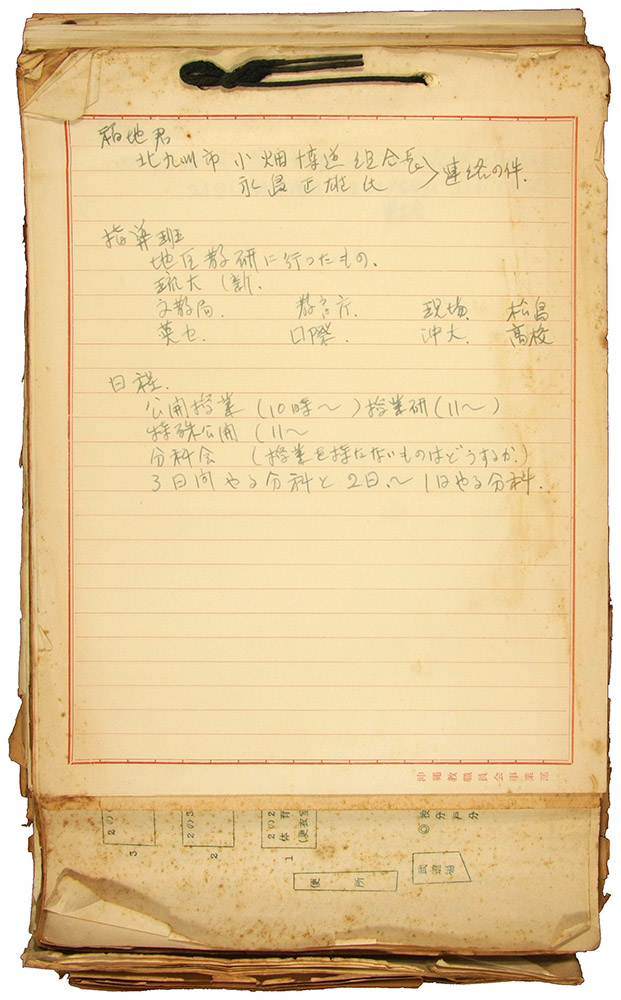 北九州市 小畑博道組合長
永畠正雄氏 〉連絡の件.
指導班
地区教研に行ったもの.
琉大 (割.
文教局. 教育庁. 現場. 松島
英セ. 口際. 沖大. 高校
日程.
公開授業 (10時〜 ) 授業研 (11〜)
特殊公開 (11〜
分科会 (授業を持たないものはどうするか.)
3日間やる分科と2日.〜1日やる分科.
沖縄教職員会事業部
2の3
2の2
体育
3
2
1
便所
武道場